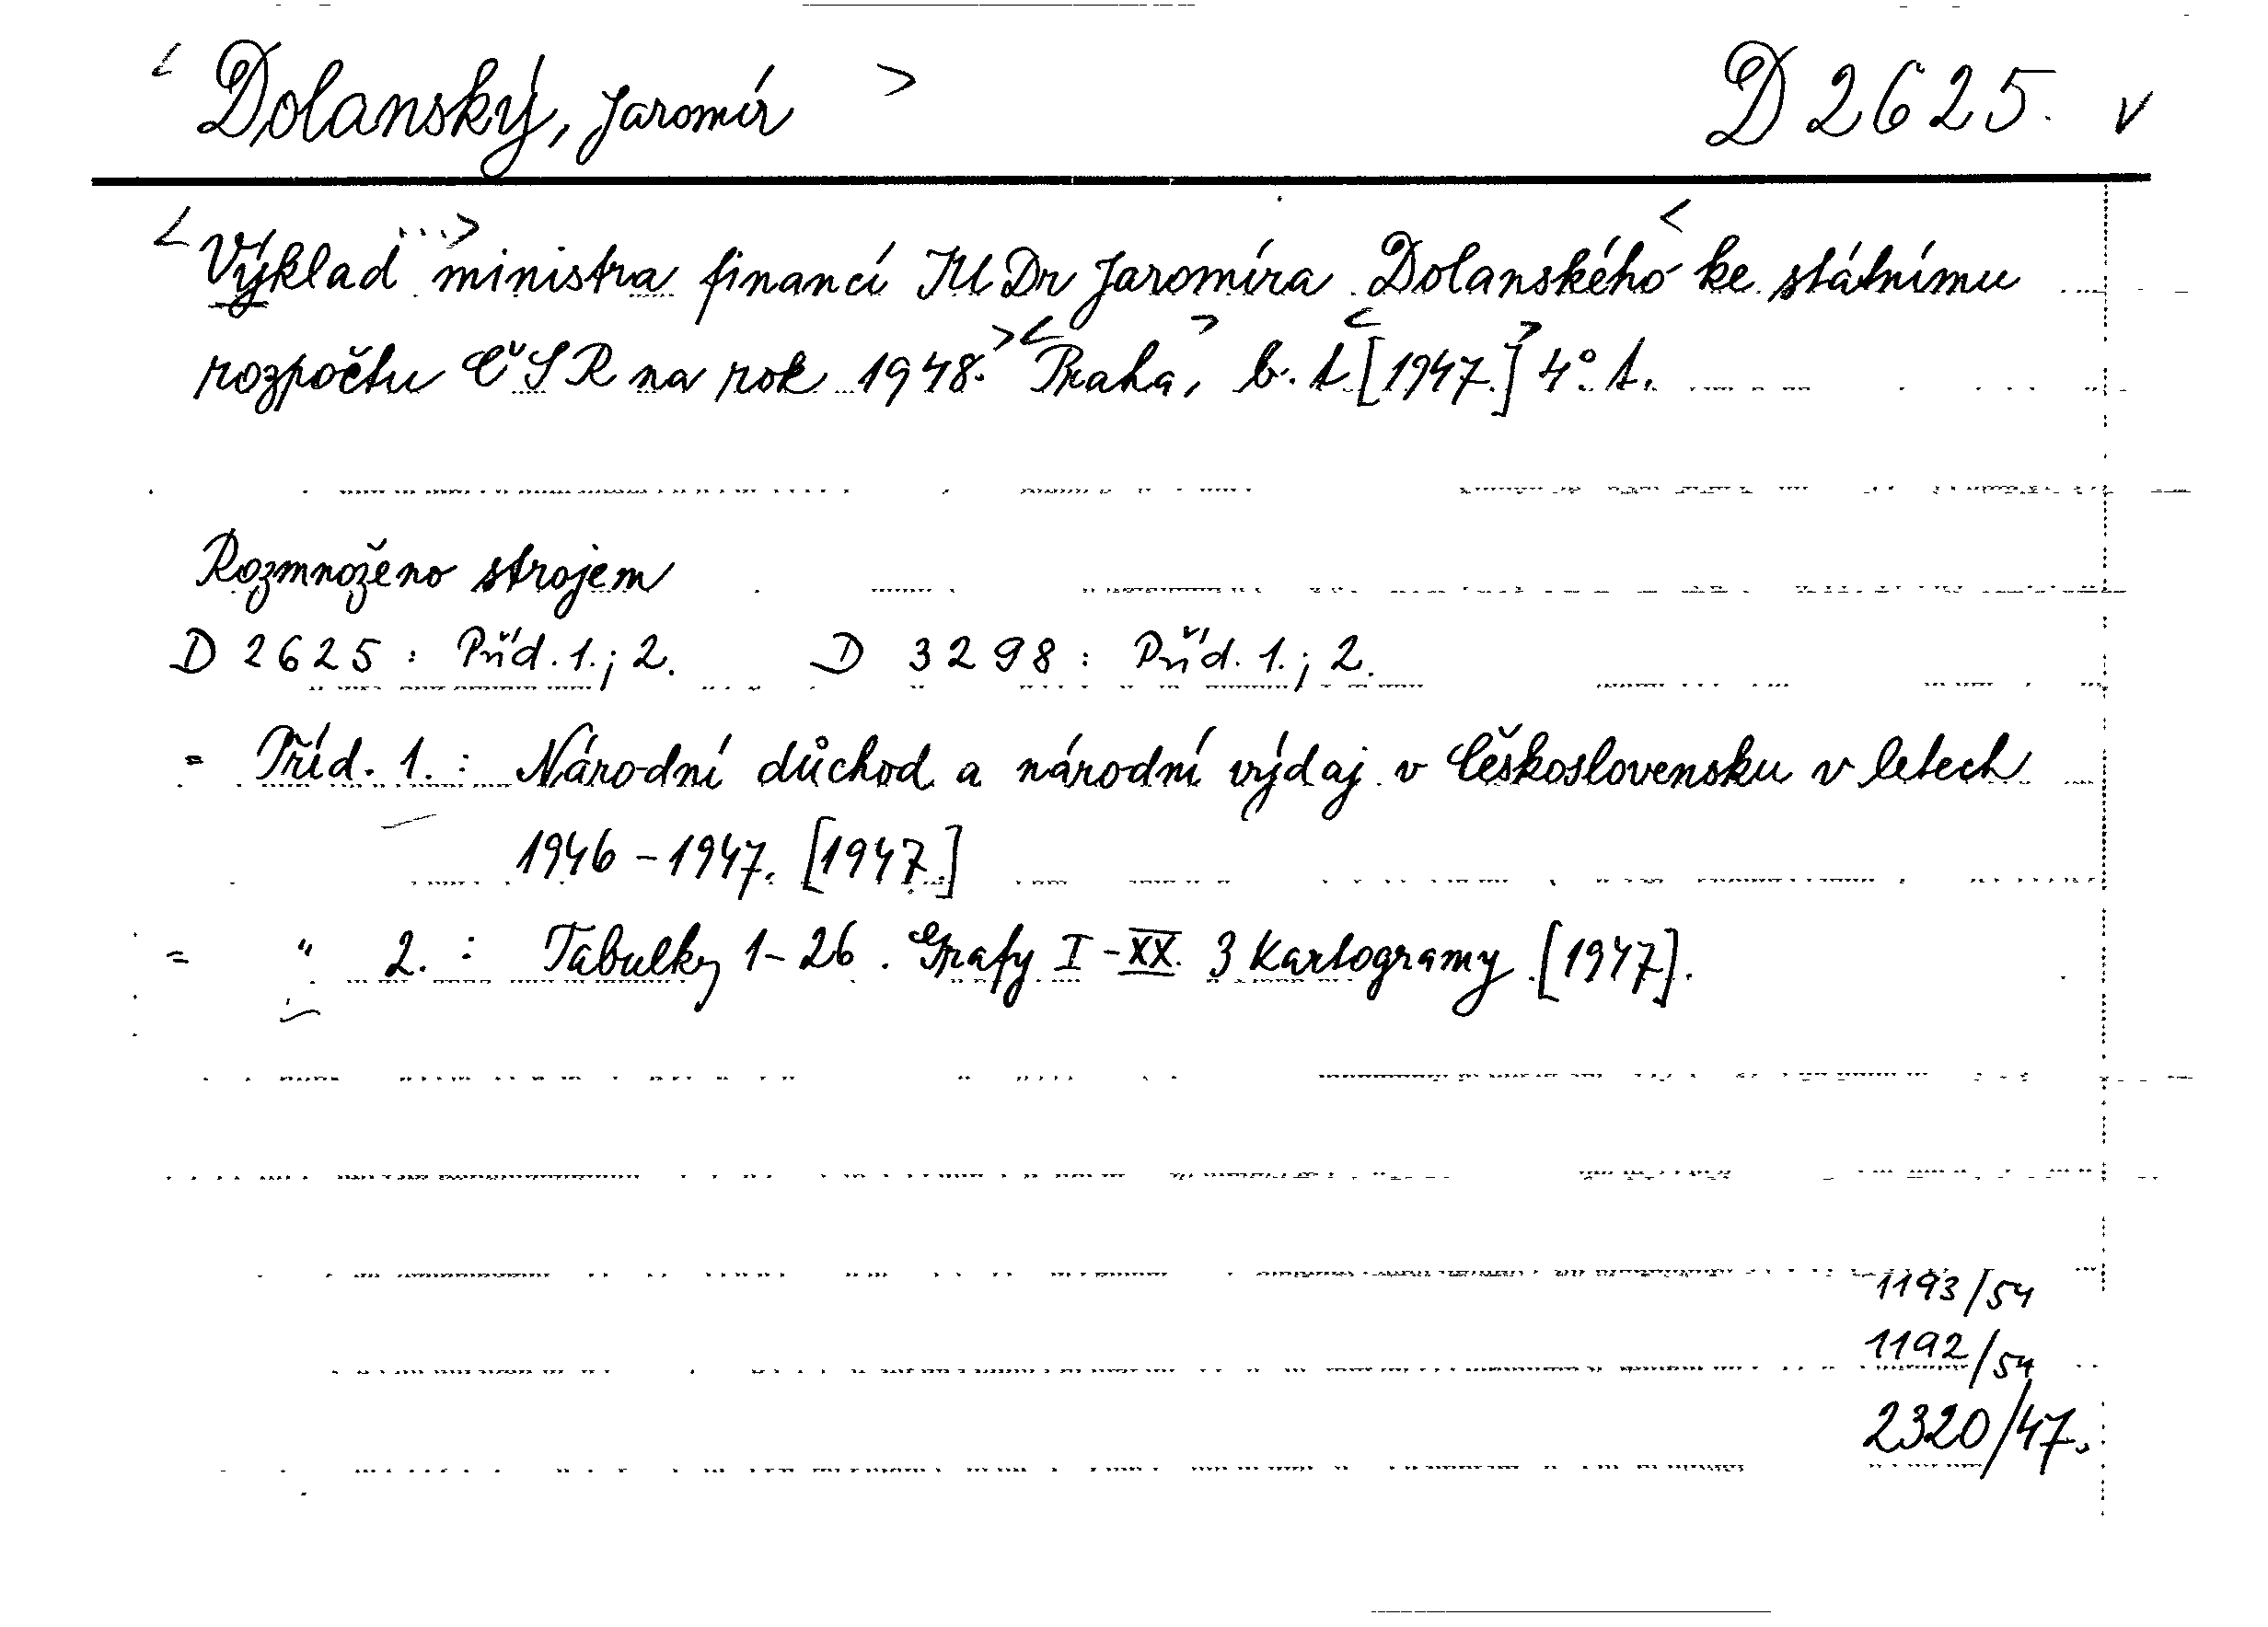 < Dolanský, Jaromír > D 2625. v
< Výklad ...> ministra financí JUDr Jaromíra Dolanského < ke státnímu
rozpočtu ČSR na rok 1948. > < Praha, > b. t. < [1947.] > 4° t.
Rozmnoženo strojem
D 2625 : Příd. 1.; 2. D 3298 : Příd. 1.; 2.
= Příd. 1. : Národní důchod a národní výdaj v Československu v letech
1946 - 1947. [1947.]
= " 2. : Tabulky 1 - 26. Grafy I - XX. 3 Kartogramy [1947].
1193/54
1192/54
2320/47.